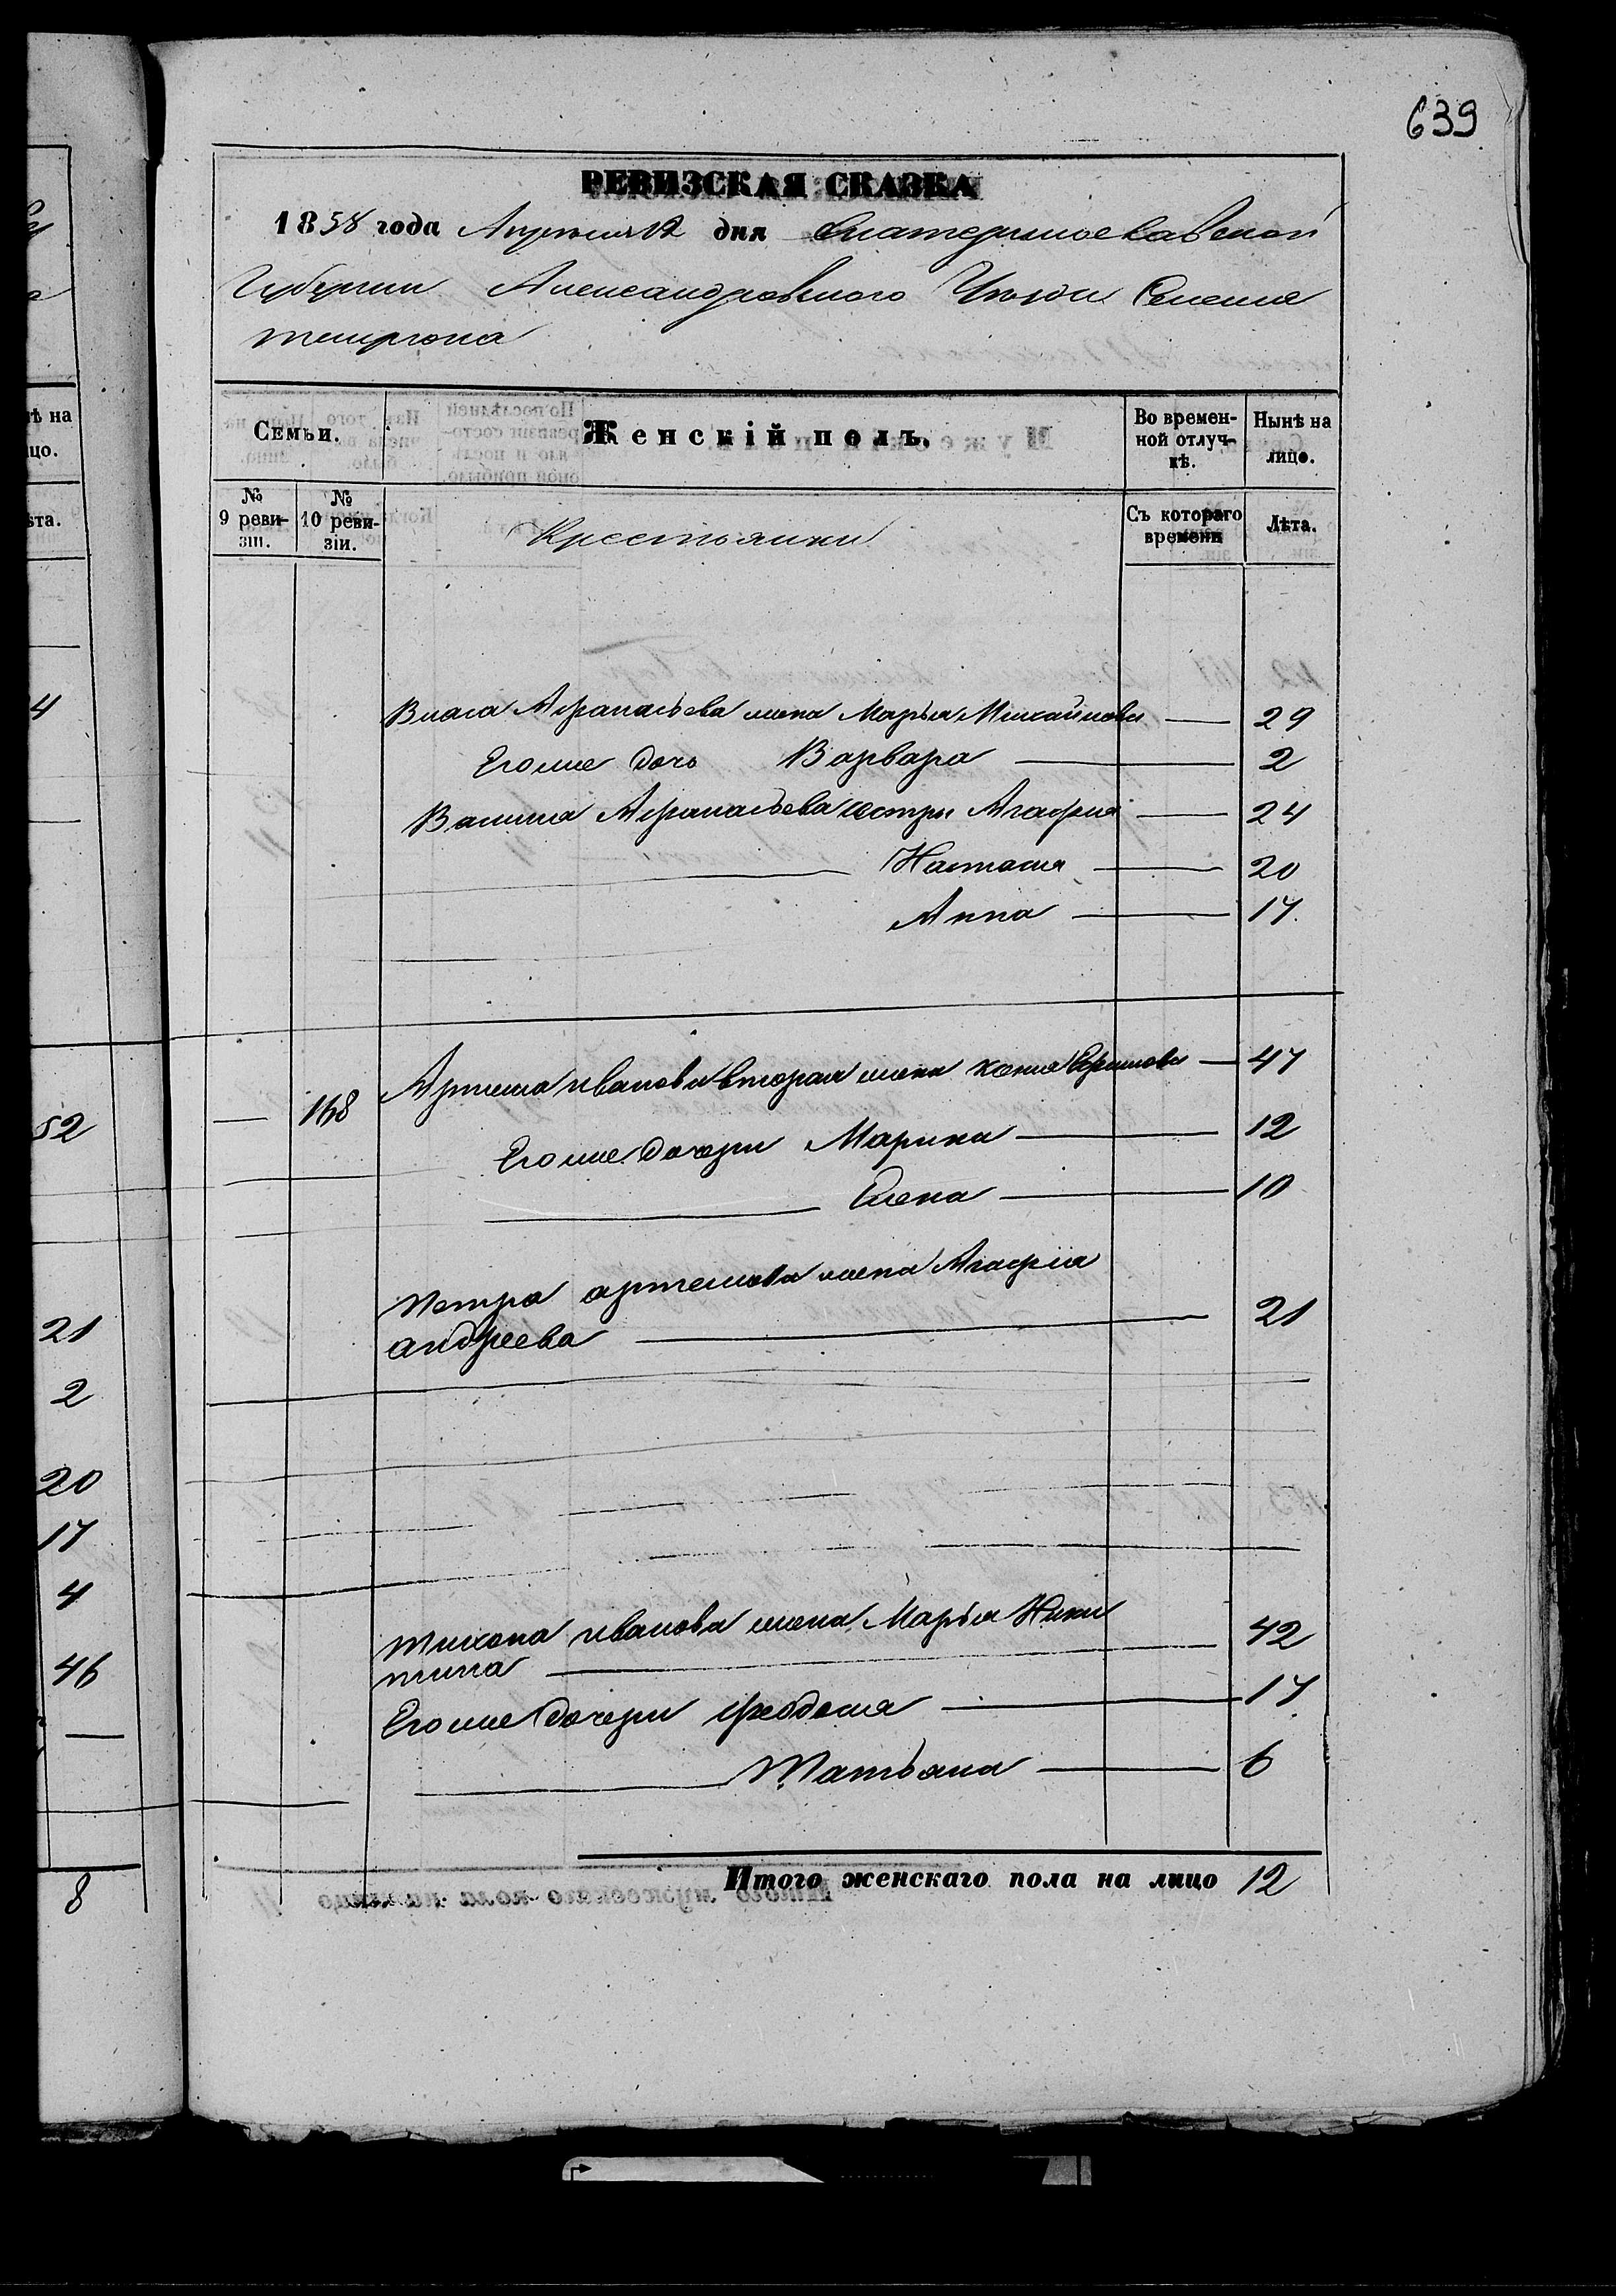 639
РЕВИЗСКАЯ СКАЗКА
1858 года Апреля 12 дня Екатеринославской
Губернии Александровского Уезда Селения
темрюка
Семьи.
Женскій полъ.
Во времен-
ной отлуч-
кѣ.
Нынѣ на
лицо.
№
9 реви-
зіи.
№
10 реви-
зіи.
Крестьянки
Съ котораго
времени
Лѣта.
Власа Афанасьева жена Марья Михайлова — 29
Его же дочь Варвара — 2
Василия Афанасьева сестры Агафия — 24
Настасия — 20
Анна — 17.
— 168 Артема иванова вторая жена ксения Ефимова — 47
Его же дочери Марина — 12
Елена — 10
Петра артемова жена Агафия
андреева — 21
тихона иванова жена Марья Ники
тина — 42
Его же дочери феодосия — 17
Татьяна — 6
Итого женскаго пола на лицо 12
ѣ на
цо.
ѣта.
4
52
21
2
20
17
4
46
—
8